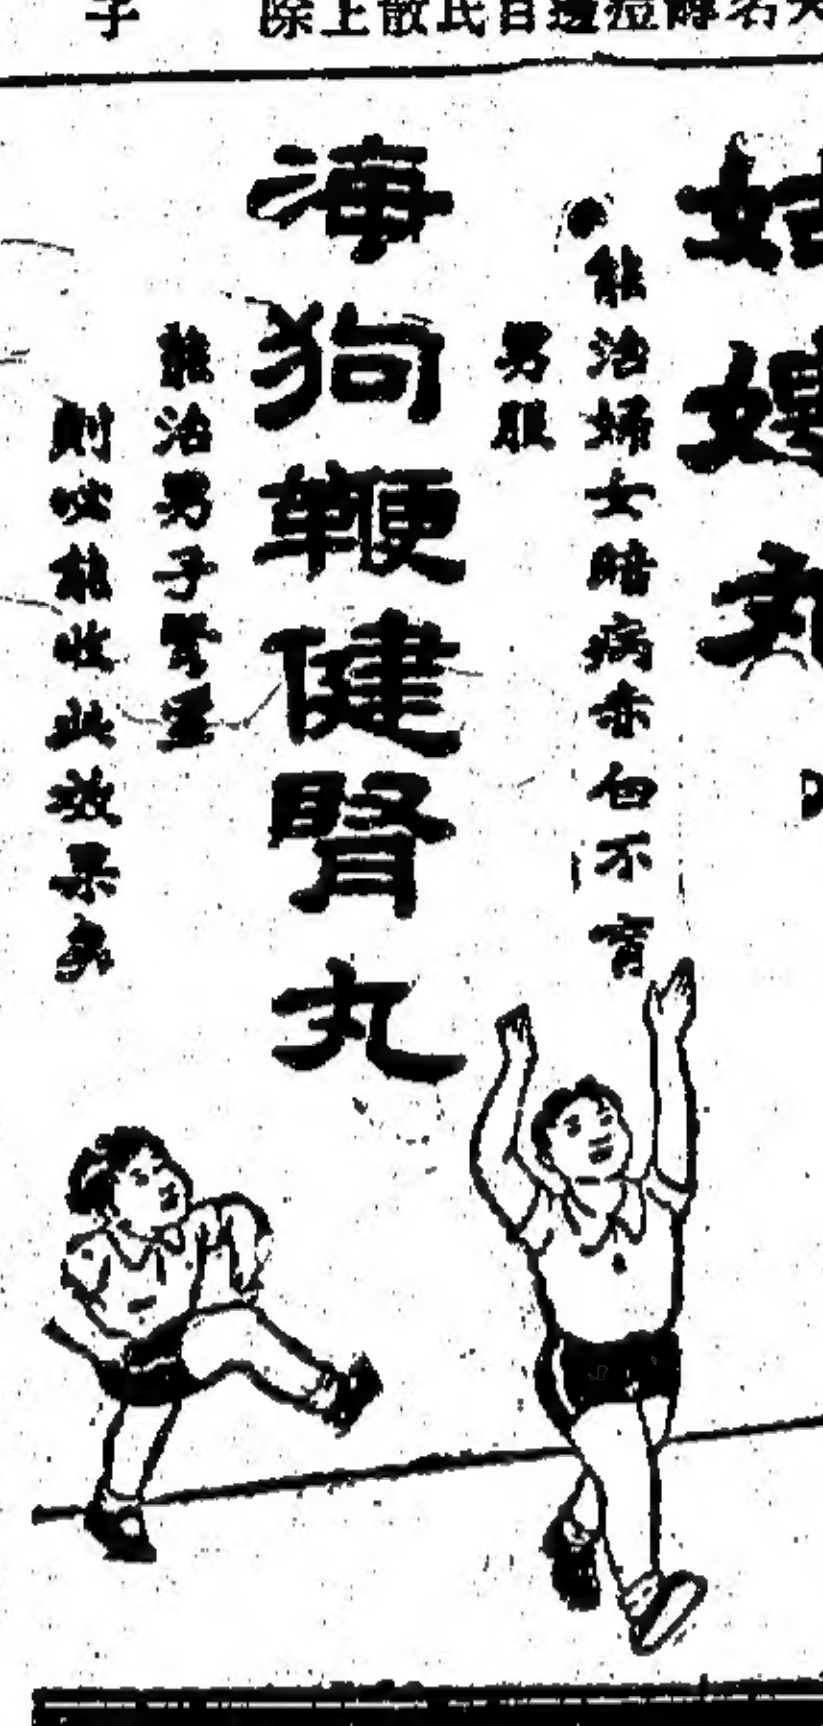 子
姑嫂丸
能治婦女暗病赤白不育
男服
海狗鞭健腎丸
能治男子腎
則必能收此效果矣